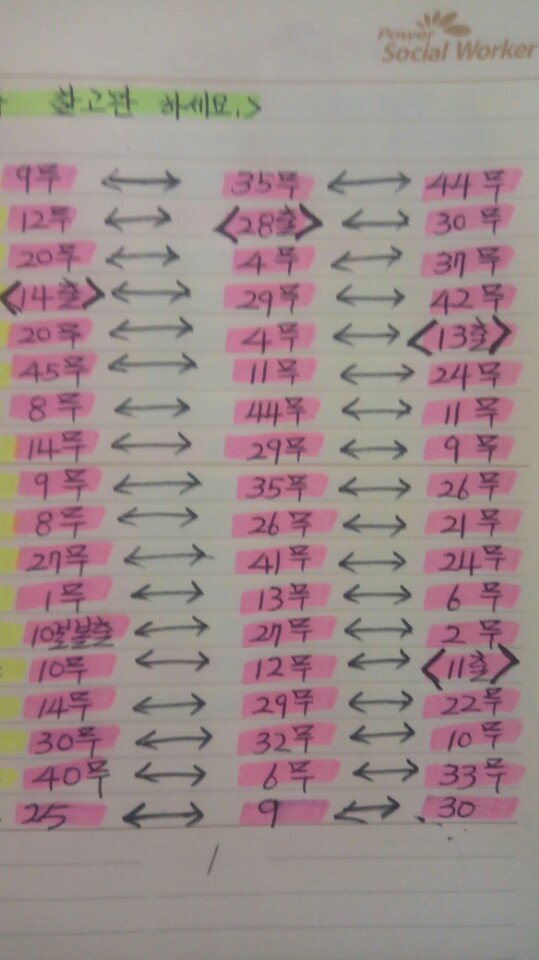 Power
Social Worker
참고만 하세요.>
9무 ↔ 35무 ↔ 44무
12무 ↔ <28출> ↔ 30무
20무 ↔ 4무 ↔ 37무
<14출> ↔ 29무 ↔ 42무
20무 ↔ 4무 ↔ <13출>
45무 ↔ 11무 ↔ 24무
8무 ↔ 44무 ↔ 11무
14무 ↔ 29무 ↔ 9무
9무 ↔ 35무 ↔ 26무
8무 ↔ 26무 ↔ 21무
27무 ↔ 41무 ↔ 24무
1무 ↔ 13무 ↔ 6무
10필불출 ↔ 27무 ↔ 2무
10무 ↔ 12무 ↔ <11출>
14무 ↔ 29무 ↔ 22무
30무 ↔ 32무 ↔ 10무
40무 ↔ 6무 ↔ 33무
25 ↔ 9 ↔ 30
/